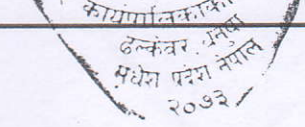 कार्यपालिकाको
ढल्केवर, धनुषा
मधेश प्रदेश नेपाल
२०७३